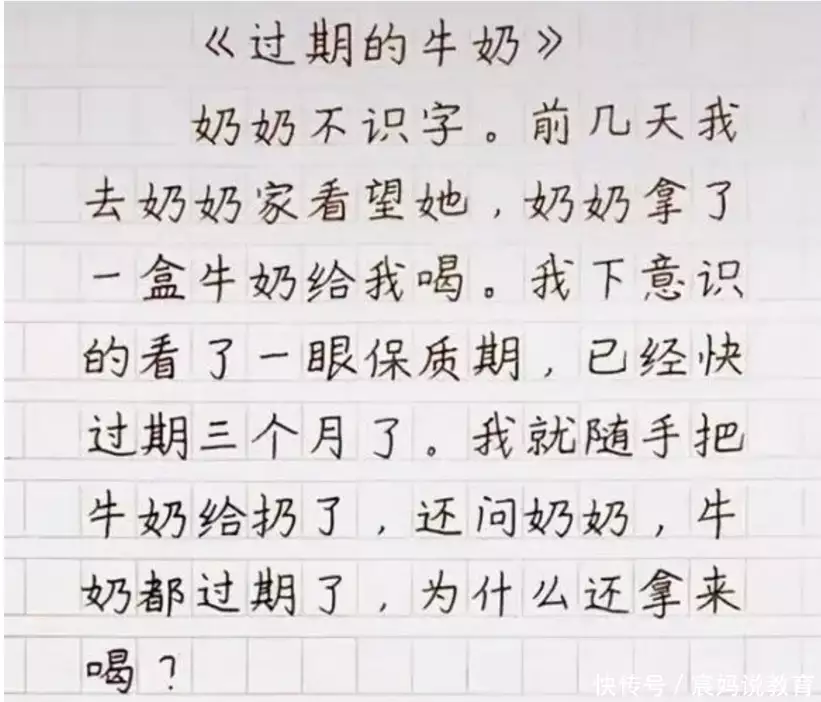 《过期的牛奶》
奶奶不识字。前几天我
去奶奶家看望她，奶奶拿了
一盒牛奶给我喝。我下意识
的看了一眼保质期，已经快
过期三个月了。我就随手把
牛奶给扔了，还问奶奶，牛
奶都过期了，为什么还拿来
喝？
快传号/宸妈说教育